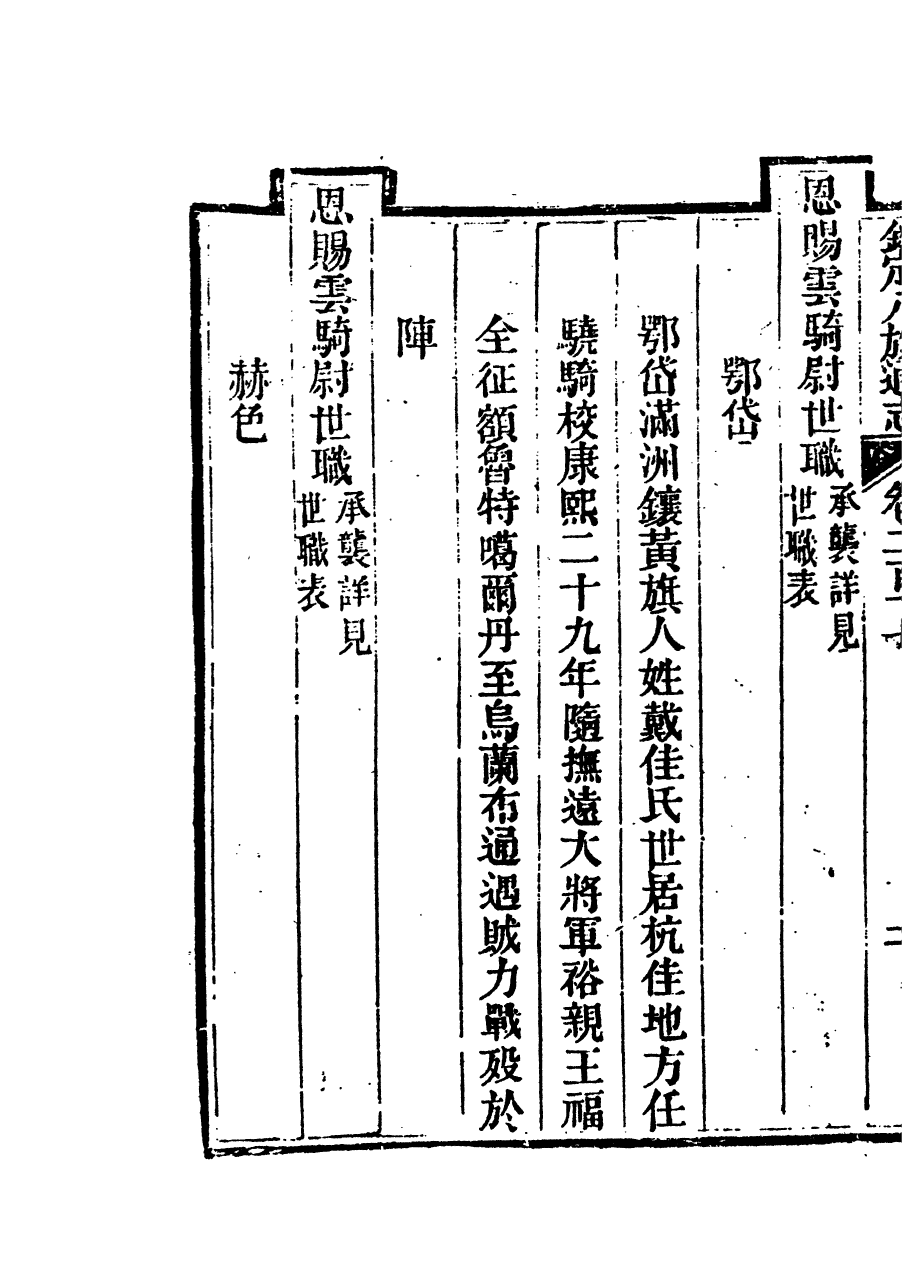 恩賜雲騎尉世職承襲詳見
世職表
鄂岱
鄂岱滿洲鑲黃旗人姓戴佳氏世居杭佳地方任
驍騎校康熙二十九年隨撫遠大將軍裕親王福
全征額魯特噶爾丹至烏蘭布通遇賊力戰歿於
陣
恩賜雲騎尉世職承襲詳見
世職表
赫色